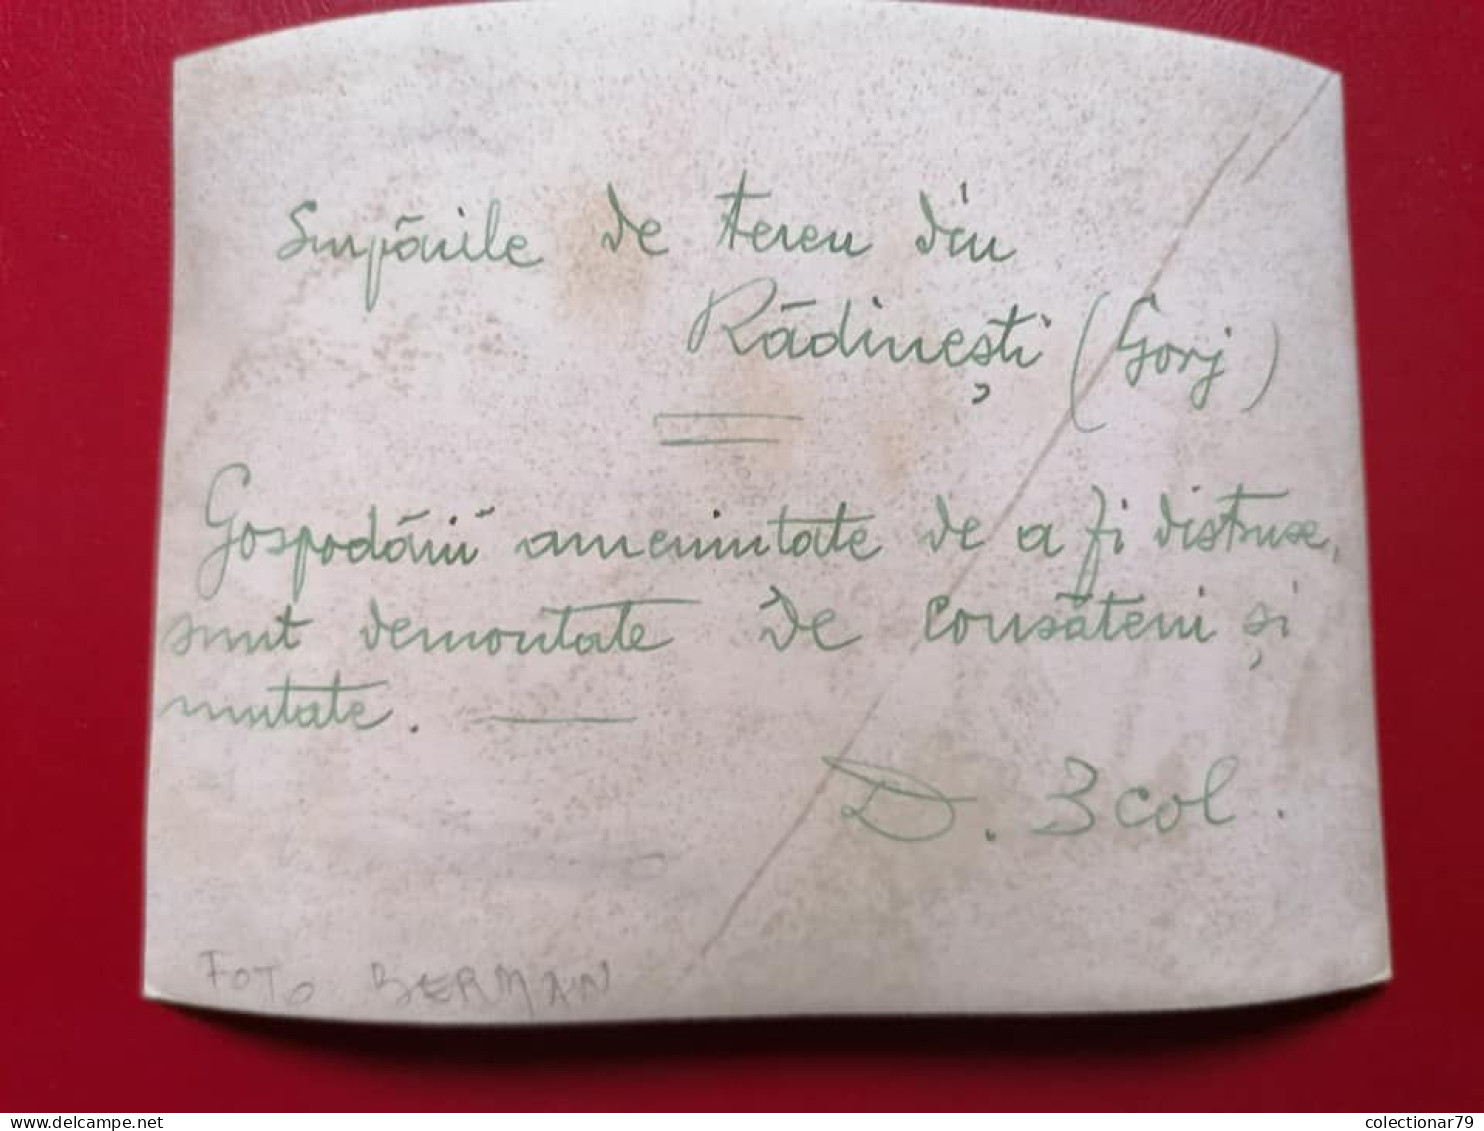 Surpările de teren din
Rădinești (Gorj)
Gospodării amenintate de a fi distruse,
sunt demontate de consăteni și
mutate. —
D. 3 col.
FOTO BERMAN
delcampe.net
colectionar79